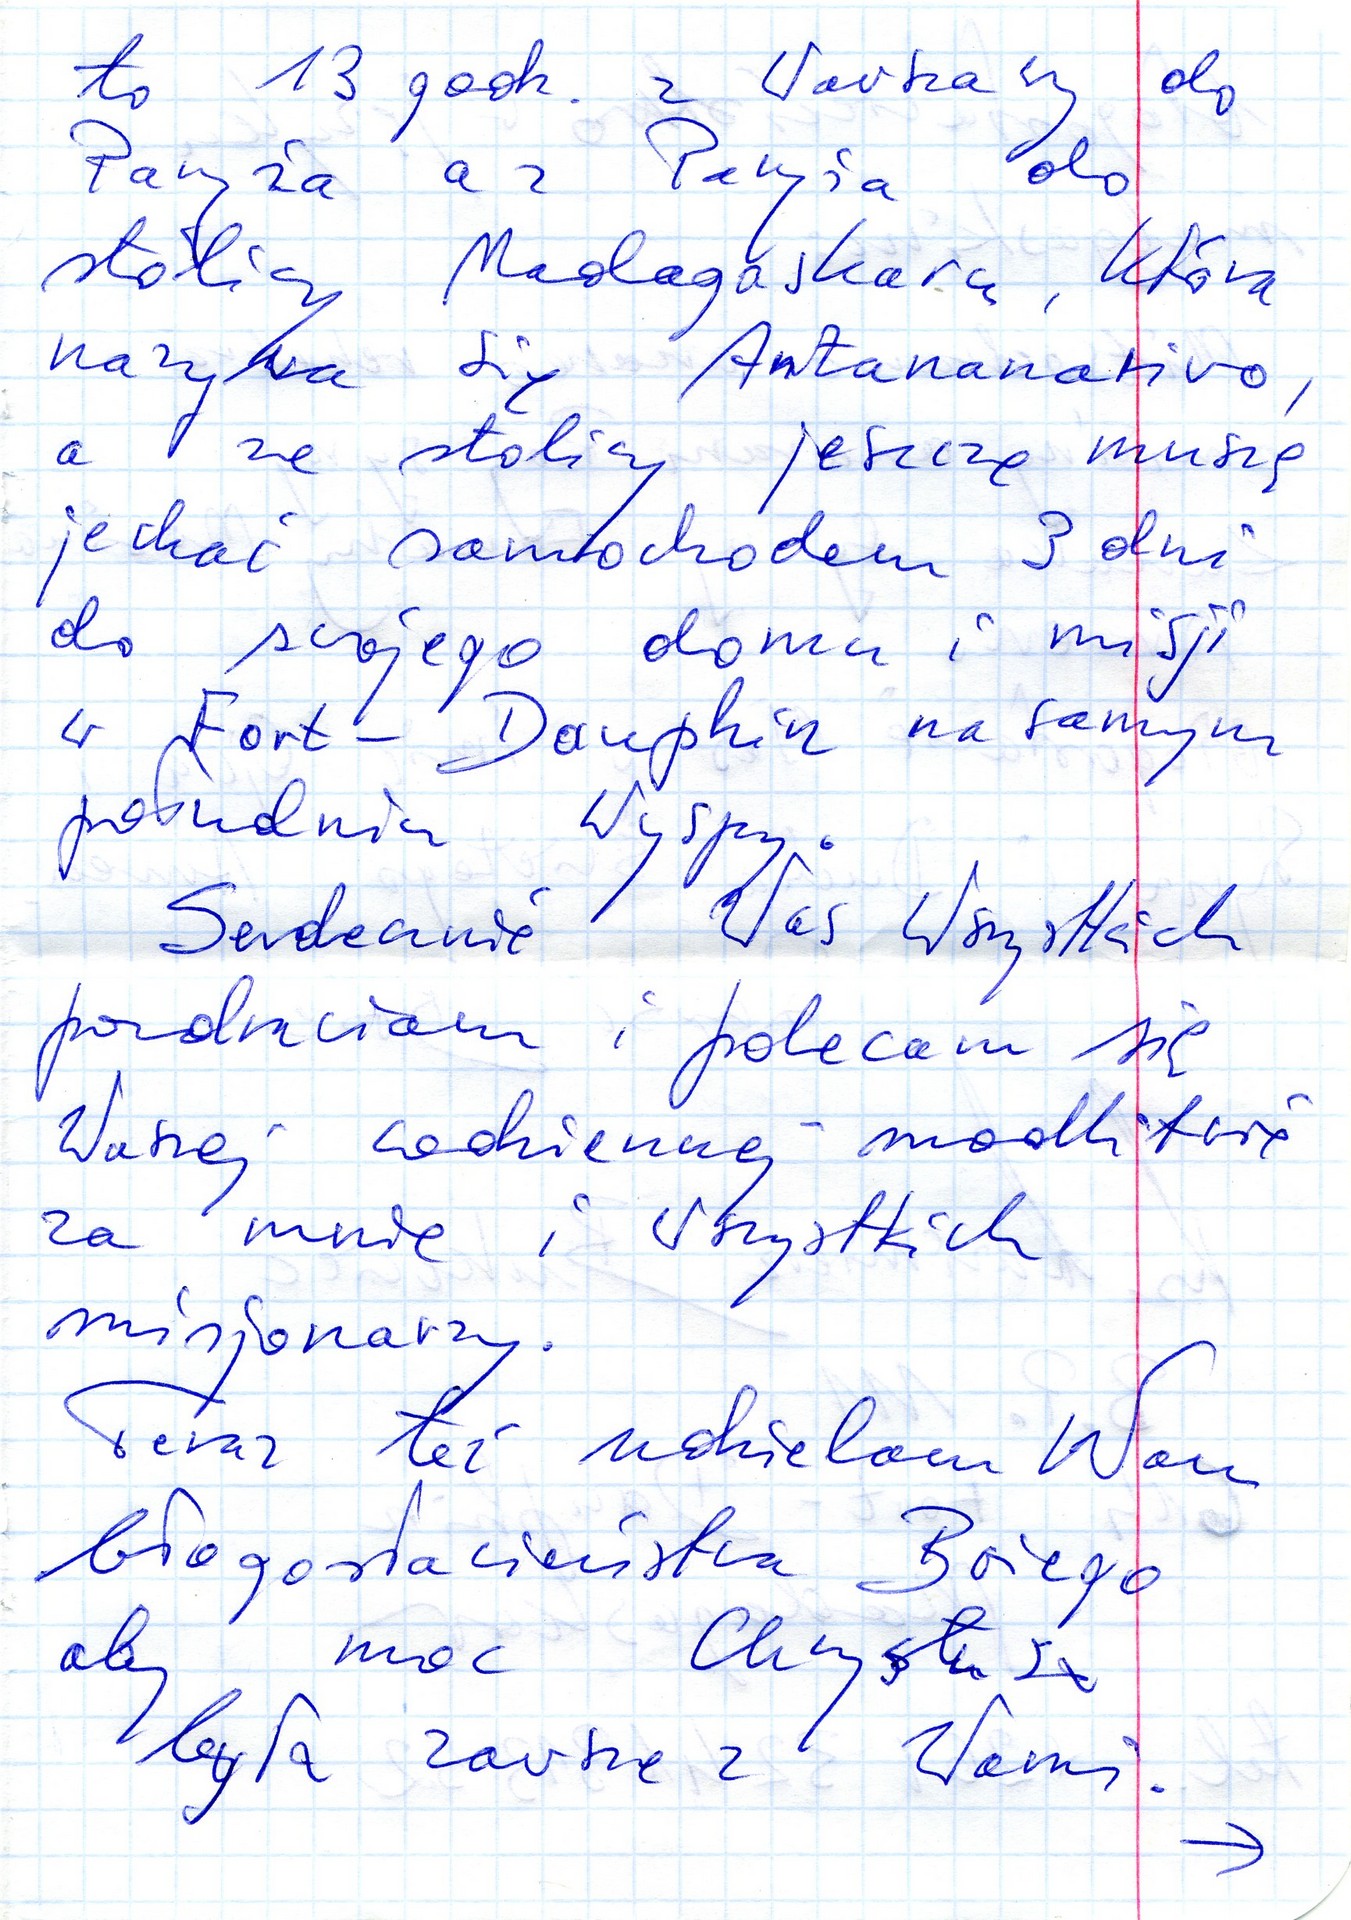 to 13 godz. z Warszawy do
Paryża a z Paryża do
stolicy Madagaskaru, która
nazywa się Antananarivo,
a ze stolicy jeszcze muszę
jechać samochodem 3 dni
do swojego domu i misji
w Fort - Dauphin na samym
południu Wyspy.
Serdecznie Was Wszystkich
pozdrawiam i polecam się
Waszej codziennej modlitwie
za mnie i wszystkich
misjonarzy.
Teraz też udzielam Wam
błogosławieństwa Bożego
aby moc Chrystusa
była zawsze z Wami.
→